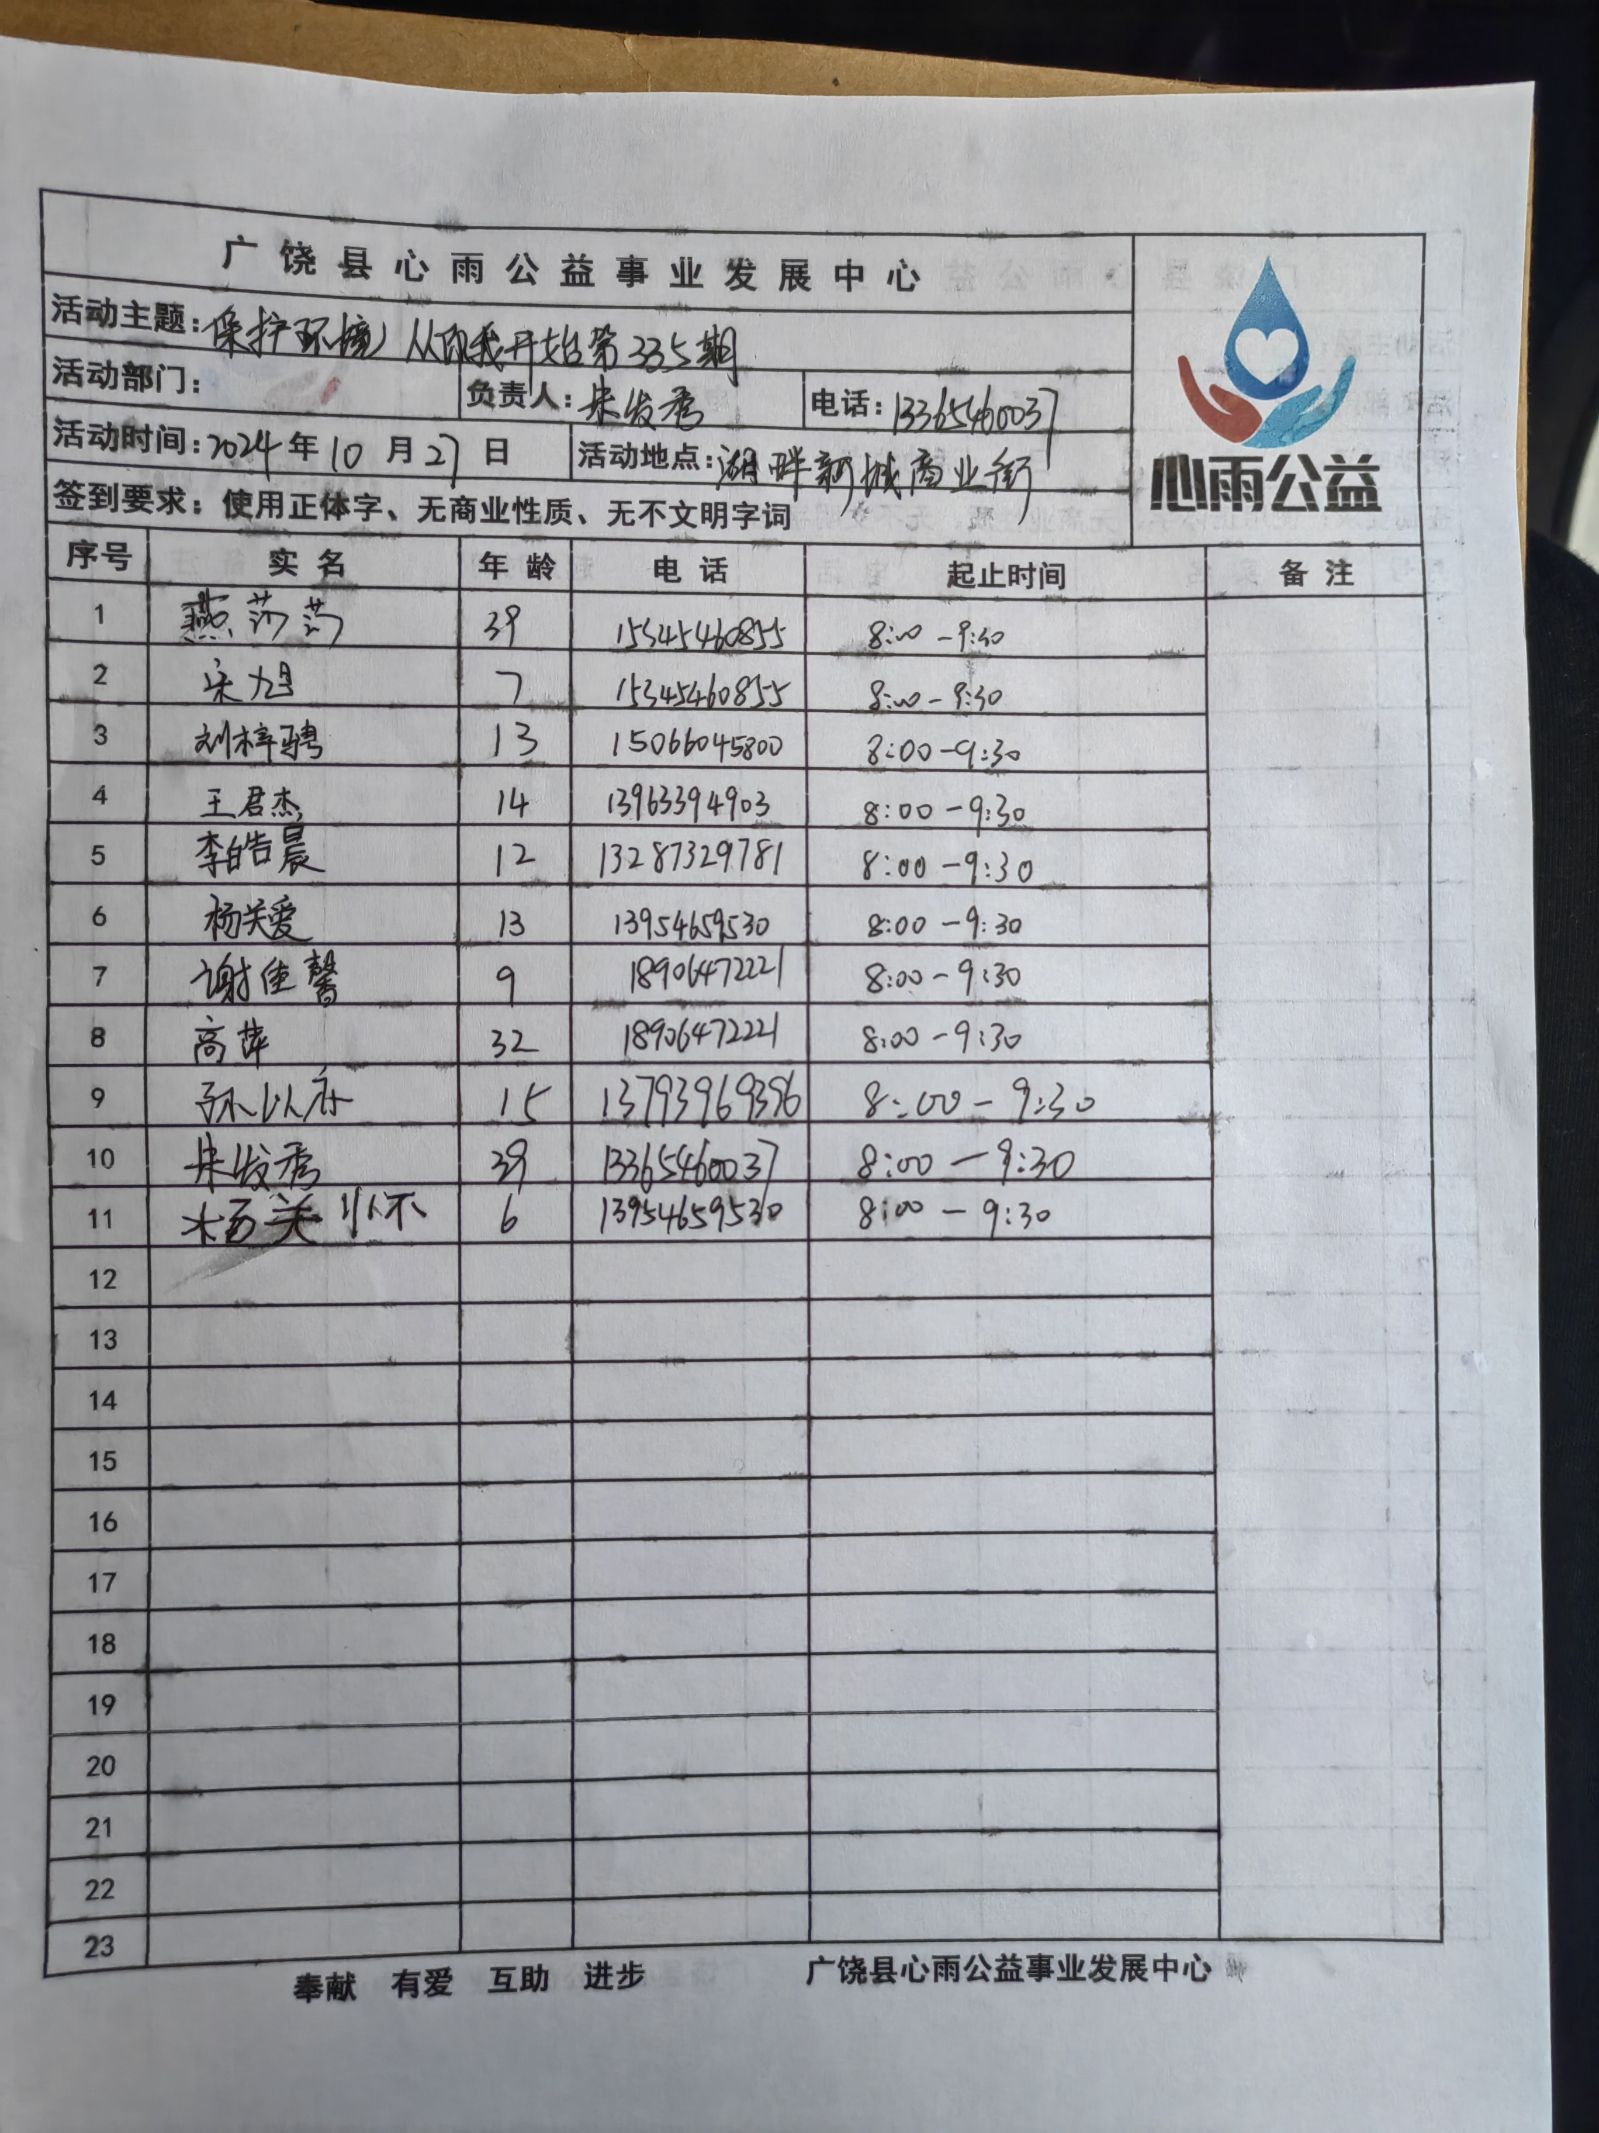 广饶县心雨公益事业发展中心
活动主题：保护环境，从你我开始第335期
活动部门： 负责人：朱发秀 电话：13365460037
活动时间：2024年10月27日 活动地点：湖畔新城商业街
心雨公益
签到要求：使用正体字、无商业性质、无不文明字词
序号 实名 年龄 电话 起止时间 备注
1 燕莎莎 39 15345460855 8:00-9:30
2 宋旭 7 15345460855 8:00-9:30
3 刘梓骋 13 15066045800 8:00-9:30
4 王君杰 14 13963394903 8:00-9:30
5 李皓晨 12 13287329781 8:00-9:30
6 杨关爱 13 13954659530 8:00-9:30
7 谢佳馨 9 18906472221 8:00-9:30
8 高萍 32 18906472221 8:00-9:30
9 孙以 15 13793969396 8:00-9:30
10 朱发秀 39 13365460037 8:00-9:30
11 杨关怀 6 13954659530 8:00-9:30
12
13
14
15
16
17
18
19
20
21
22
23
奉献 有爱 互助 进步 广饶县心雨公益事业发展中心